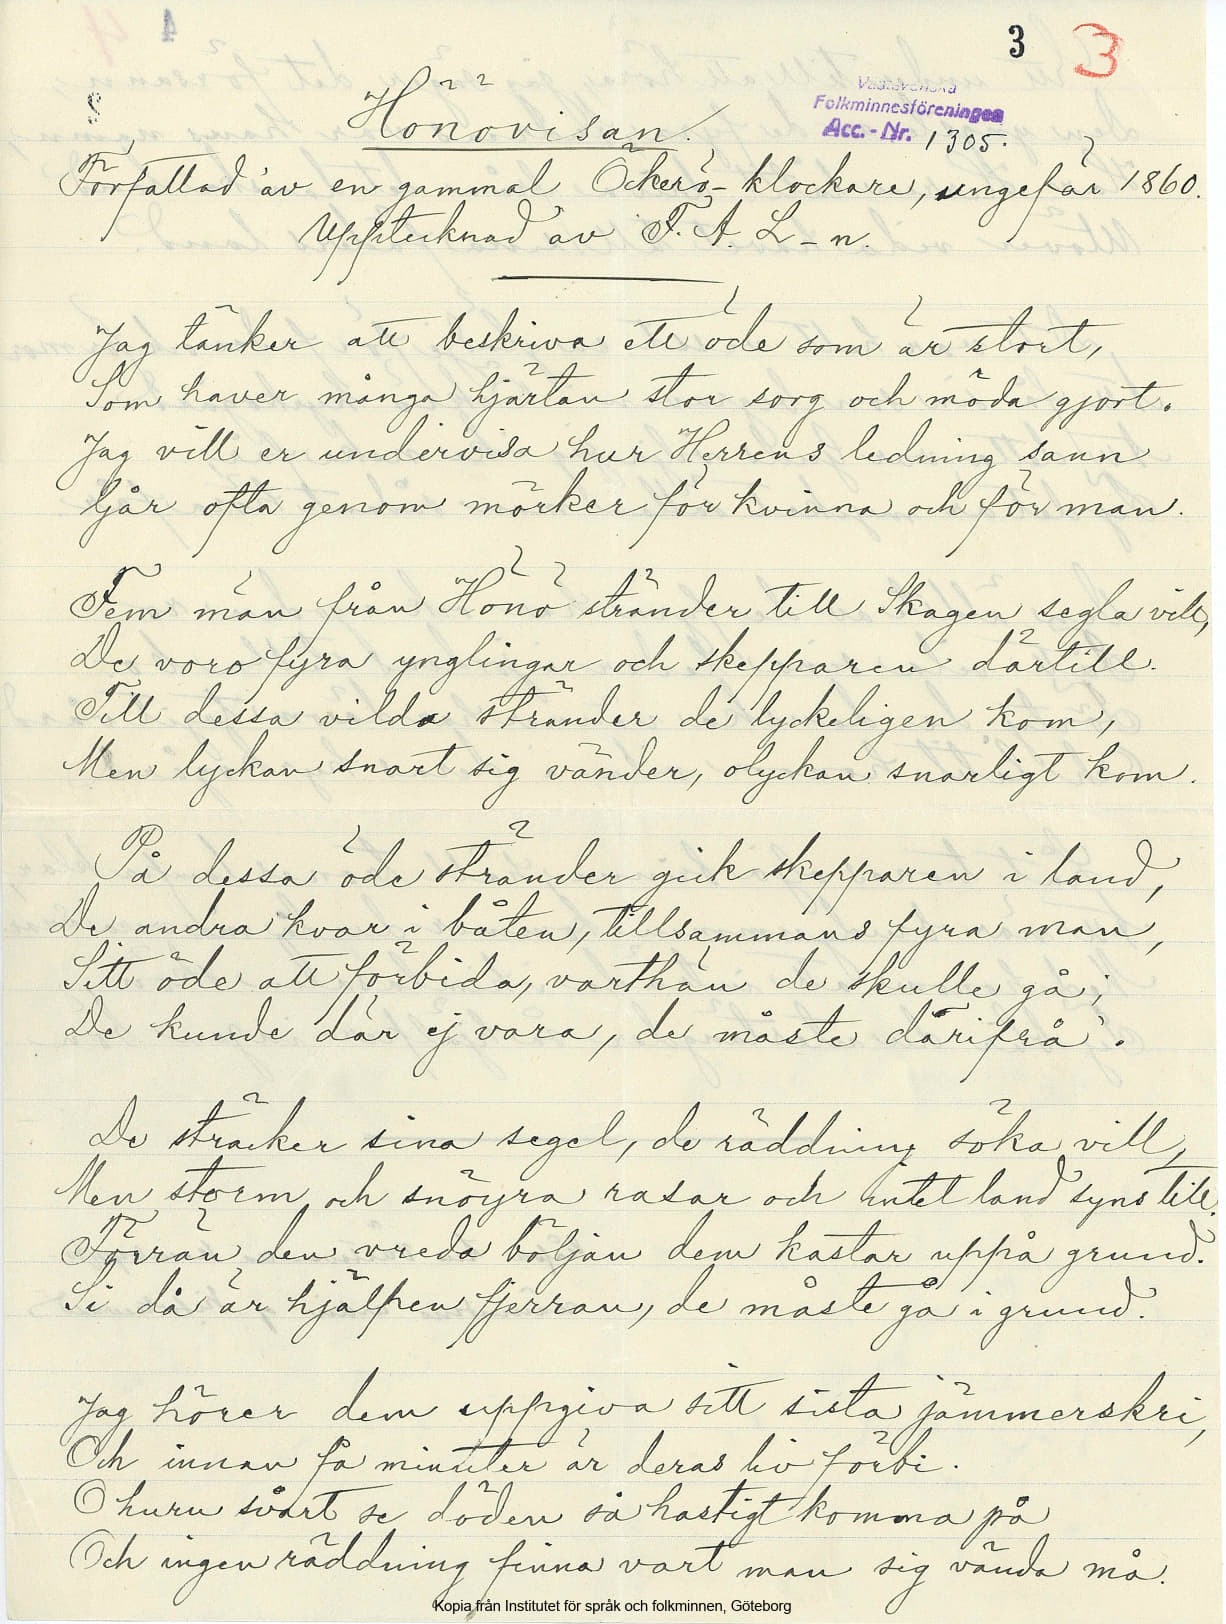 3 3
Hönövisan.
Västsvenska
Folkminnesföreningen
Acc.-Nr. 1305.
Författad av en gammal Öckerö-klockare, ungefär 1860.
Upptecknad av F. A. L-n.
Jag tänker att beskriva ett öde som är stort,
Som haver många hjärtan stor sorg och möda gjort.
Jag vill er undervisa hur Herrens ledning sann
Går ofta genom mörker för kvinna och för man.
Fem män från Hönö stränder till Skagen segla vill,
De voro fyra ynglingar och skepparen därtill.
Till dessa vilda stränder de lyckeligen kom,
Men lyckan snart sig vänder, olyckan snarligt kom.
På dessa öde stränder gick skepparen i land,
De andra kvar i båten, tillsammans fyra man,
Sitt öde att förbida, varthän de skulle gå;
De kunde där ej vara, de måste därifrå.
De sträcker sina segel, de räddning söka vill,
Men storm och snöyra rasar och intet land syns till.
Förrän den vreda böljan dem kastar uppå grund.
Si då är hjälpen fjerran, de måste gå i grund.
Jag hörer dem uppgiva sitt sista jämmerskri,
Och innan få minuter är deras liv förbi.
O huru svårt se döden så hastigt komma på
Och ingen räddning finna vart man sig vända må.
Kopia från Institutet för språk och folkminnen, Göteborg